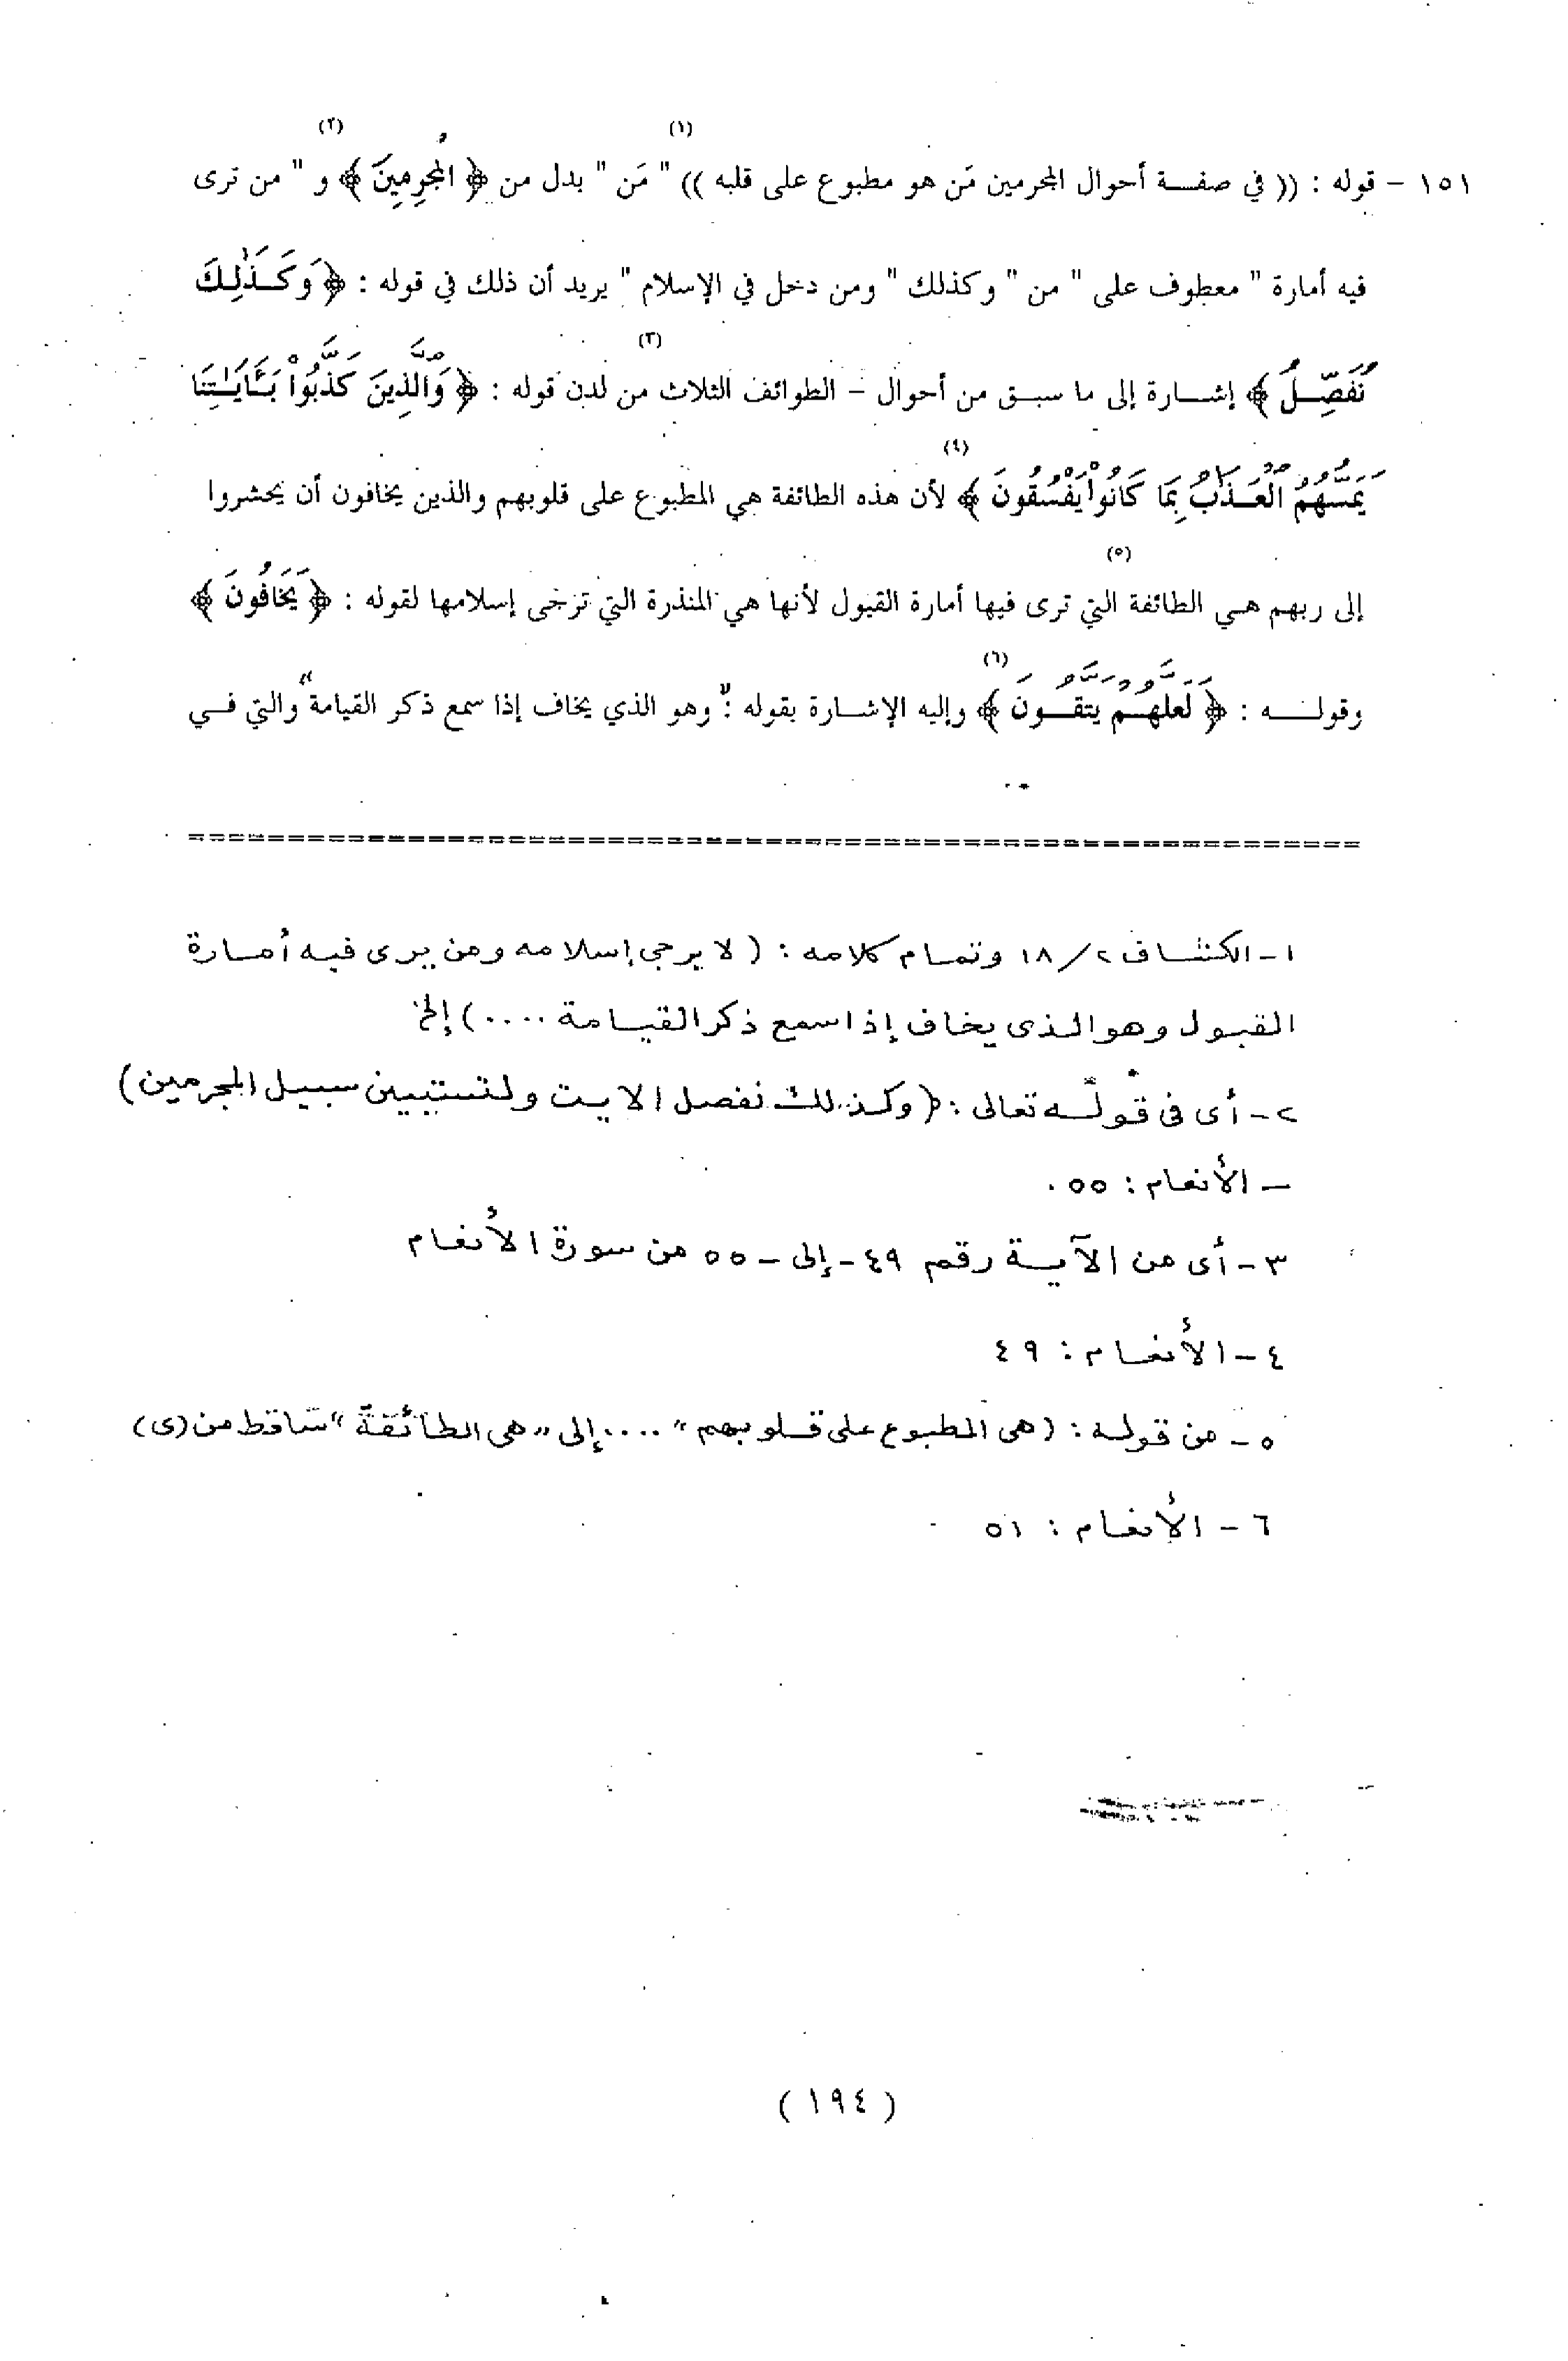 ١٥١ - قوله : (( في صفة أحوال المجرمين مَن هو مطبوع على قلبه ))(١) " مَن " بدل من ﴿ الْمُجْرِمِينَ ﴾(٢) و " من ترى
فيه أمارة " معطوف على " من " وكذلك " ومن دخل في الإسلام " يريد أن ذلك في قوله : ﴿ وَكَذَٰلِكَ
نُفَصِّلُ ﴾ إشارة إلى ما سبق من أحوال - الطوائف الثلاث(٣) من لدن قوله : ﴿ وَالَّذِينَ كَذَّبُواْ بِـَٔايَـٰتِنَا
يَمَسُّهُمُ الْعَذَابُ بِمَا كَانُواْ يَفْسُقُونَ ﴾(٤) لأن هذه الطائفة هي المطبوع على قلوبهم والذين يخافون أن يحشروا
إلى ربهم هي الطائفة(٥) التي ترى فيها أمارة القبول لأنها هي المنذرة التي ترجى إسلامها لقوله : ﴿ يَخَافُونَ ﴾
وقوله : ﴿ لَعَلَّهُمْ يَتَّقُونَ ﴾(٦) وإليه الإشارة بقوله : " وهو الذي يخاف إذا سمع ذكر القيامة " والتي في
١ - الكشاف ٢/ ١٨ وتمام كلامه : ( لا يرجى إسلامه ومن يرى فيه أمارة
القبول وهو الذى يخاف إذا سمع ذكر القيامة ....) إلخ
٢ - أى فى قوله تعالى : ( وكذلك نفصل الايت ولتستبين سبيل المجرمين )
- الأنعام : ٥٥ .
٣ - أى من الآية رقم ٤٩ - إلى - ٥٥ من سورة الأنعام
٤ - الأنعام : ٤٩
٥ - من قوله : ( هى المطبوع على قلوبهم " .... إلى " هى الطائفة " ساقط من (ى)
٦ - الأنعام : ٥١
( ١٩٤ )